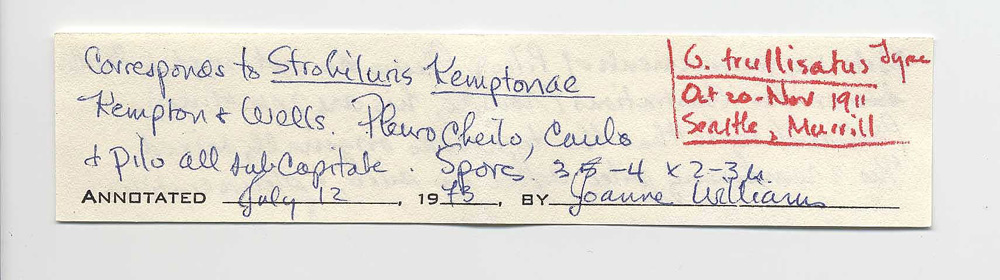 Corresponds to Strobiluris Kemptonae
Kempton & Wells. Pleuro, Cheilo, Caulo
& pilo all subcapitate. Spors. 3.5-4 x 2-3 µ.
ANNOTATED July 12, 1973, BY Joanne Williams
G. trullisatus Type
Oct 20-Nov 1911
Seattle, Murrill